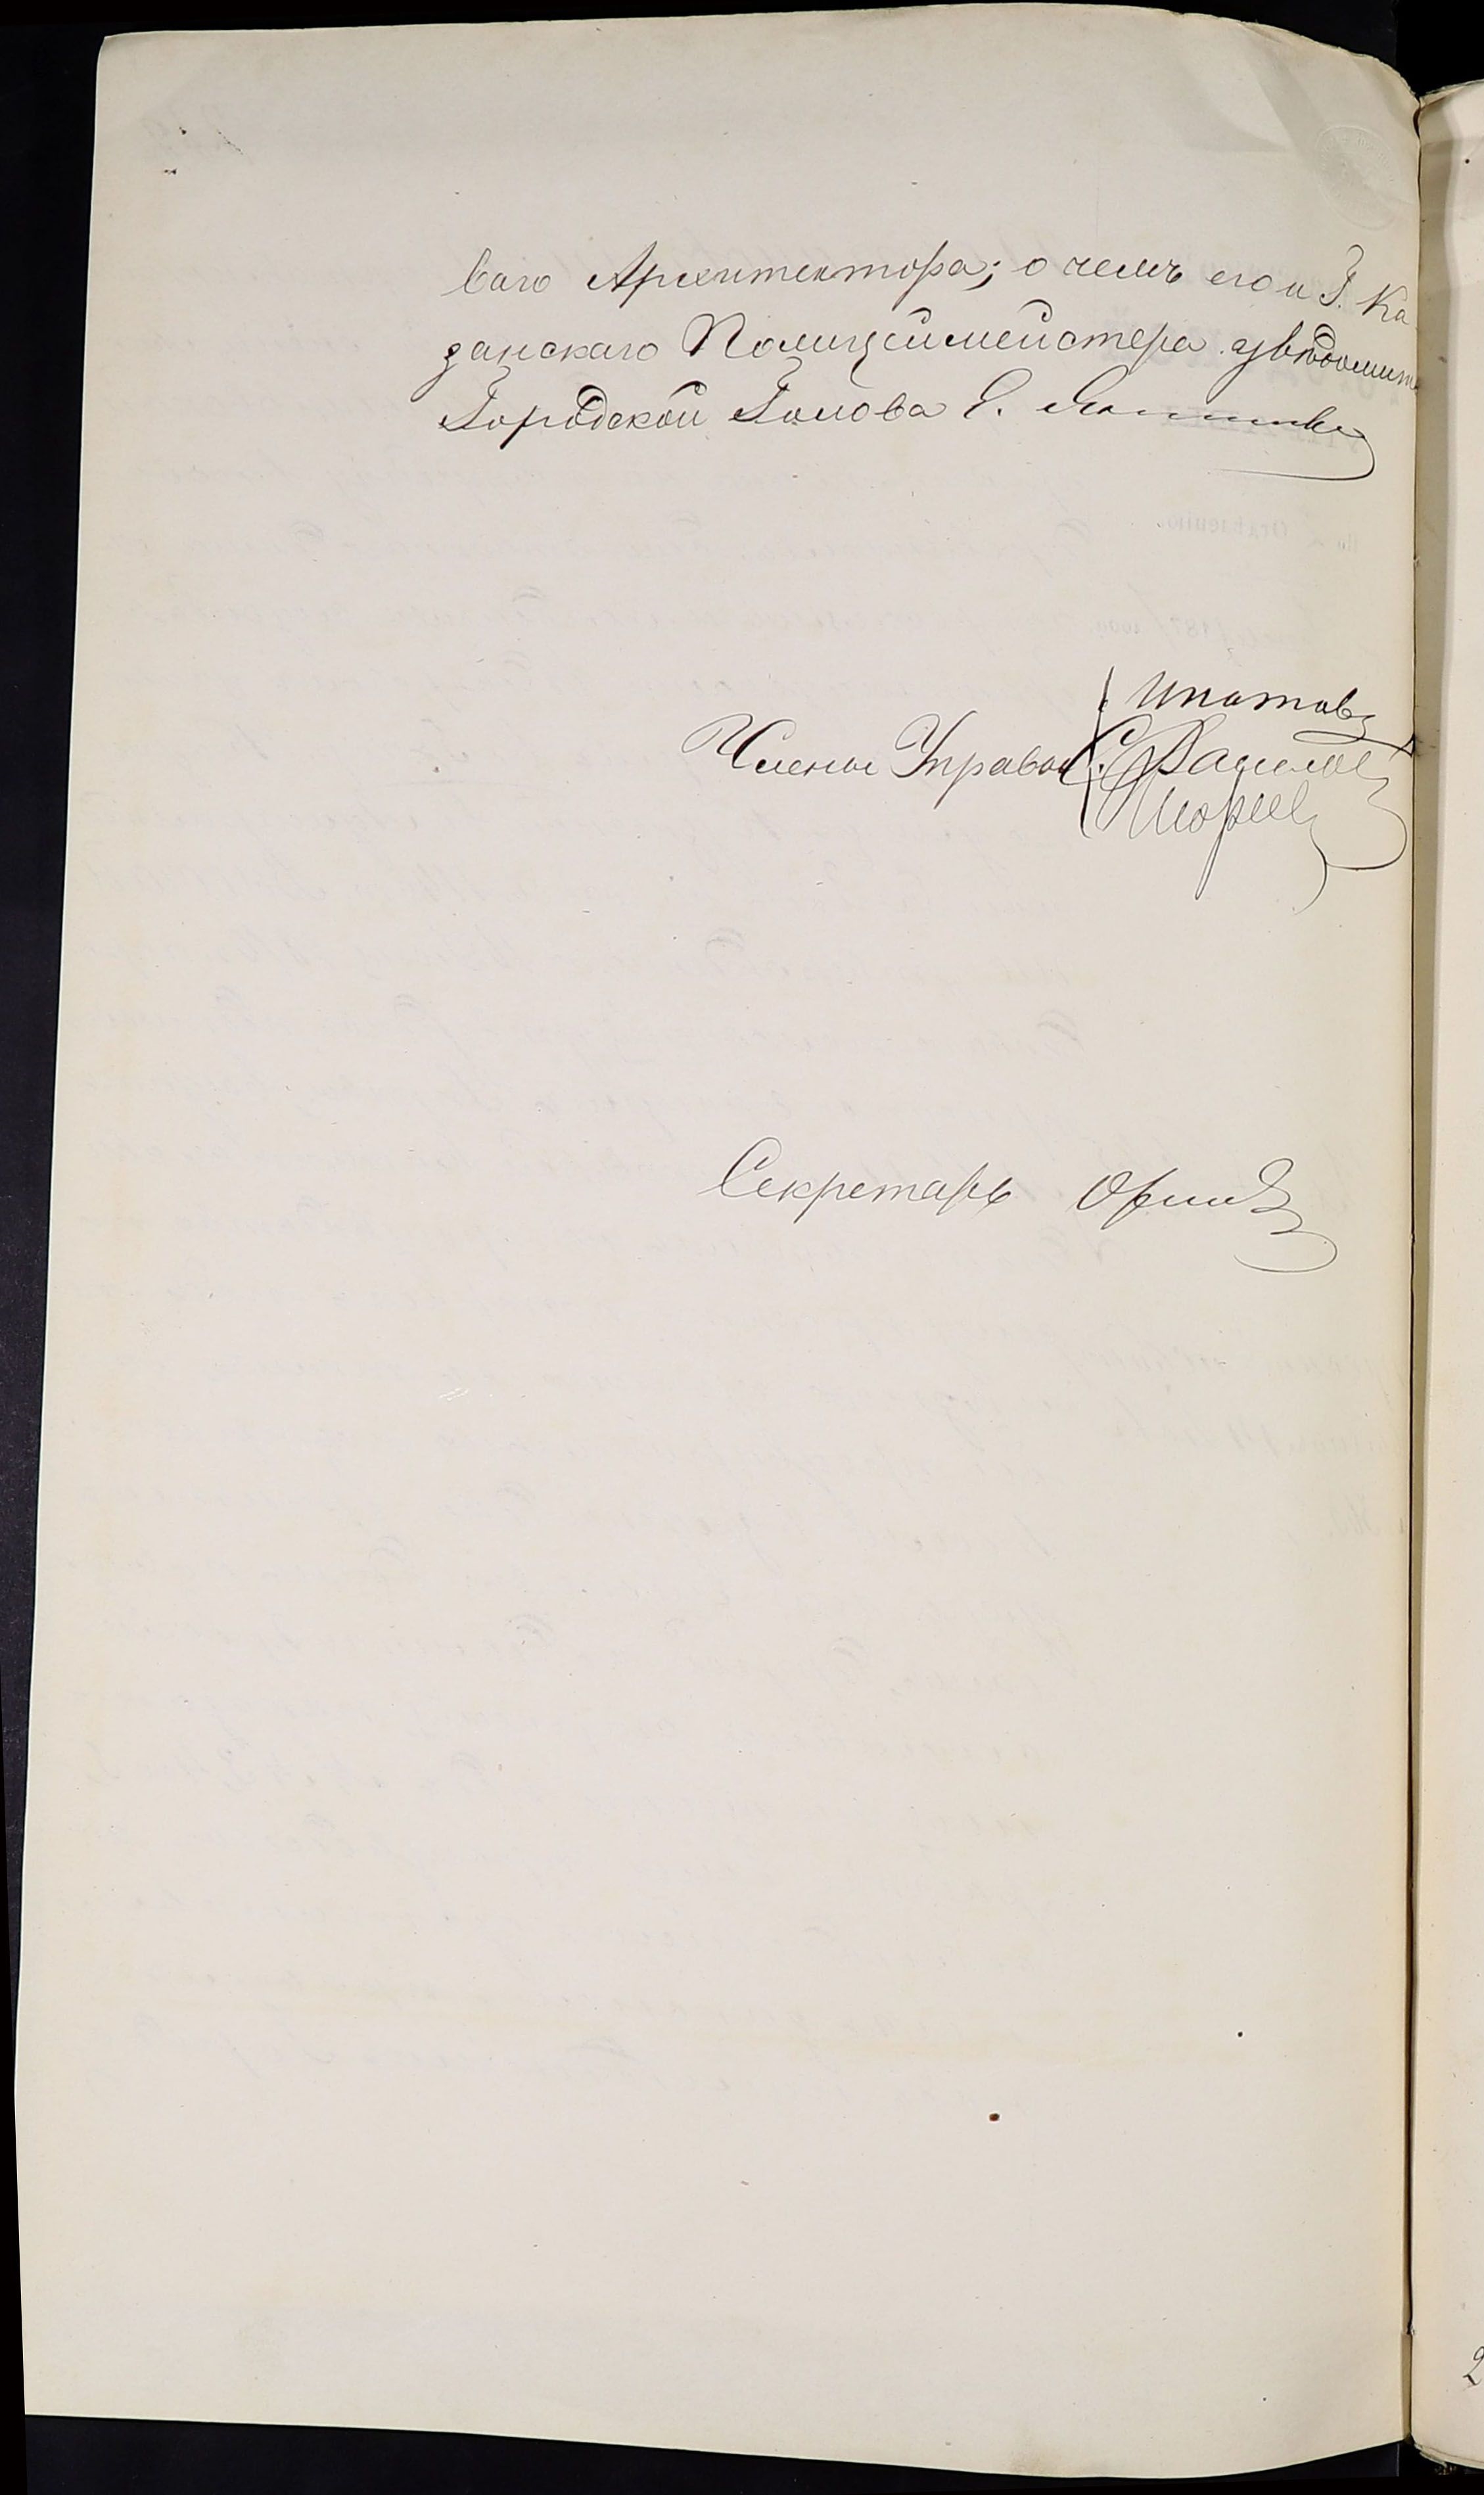 ваго Архитектора; о чемъ его и Г. Ка
занскаго Полицiймейстера увѣдомить
Городской Голова Е.
Члены Управы
Ипатовъ
Секретарь